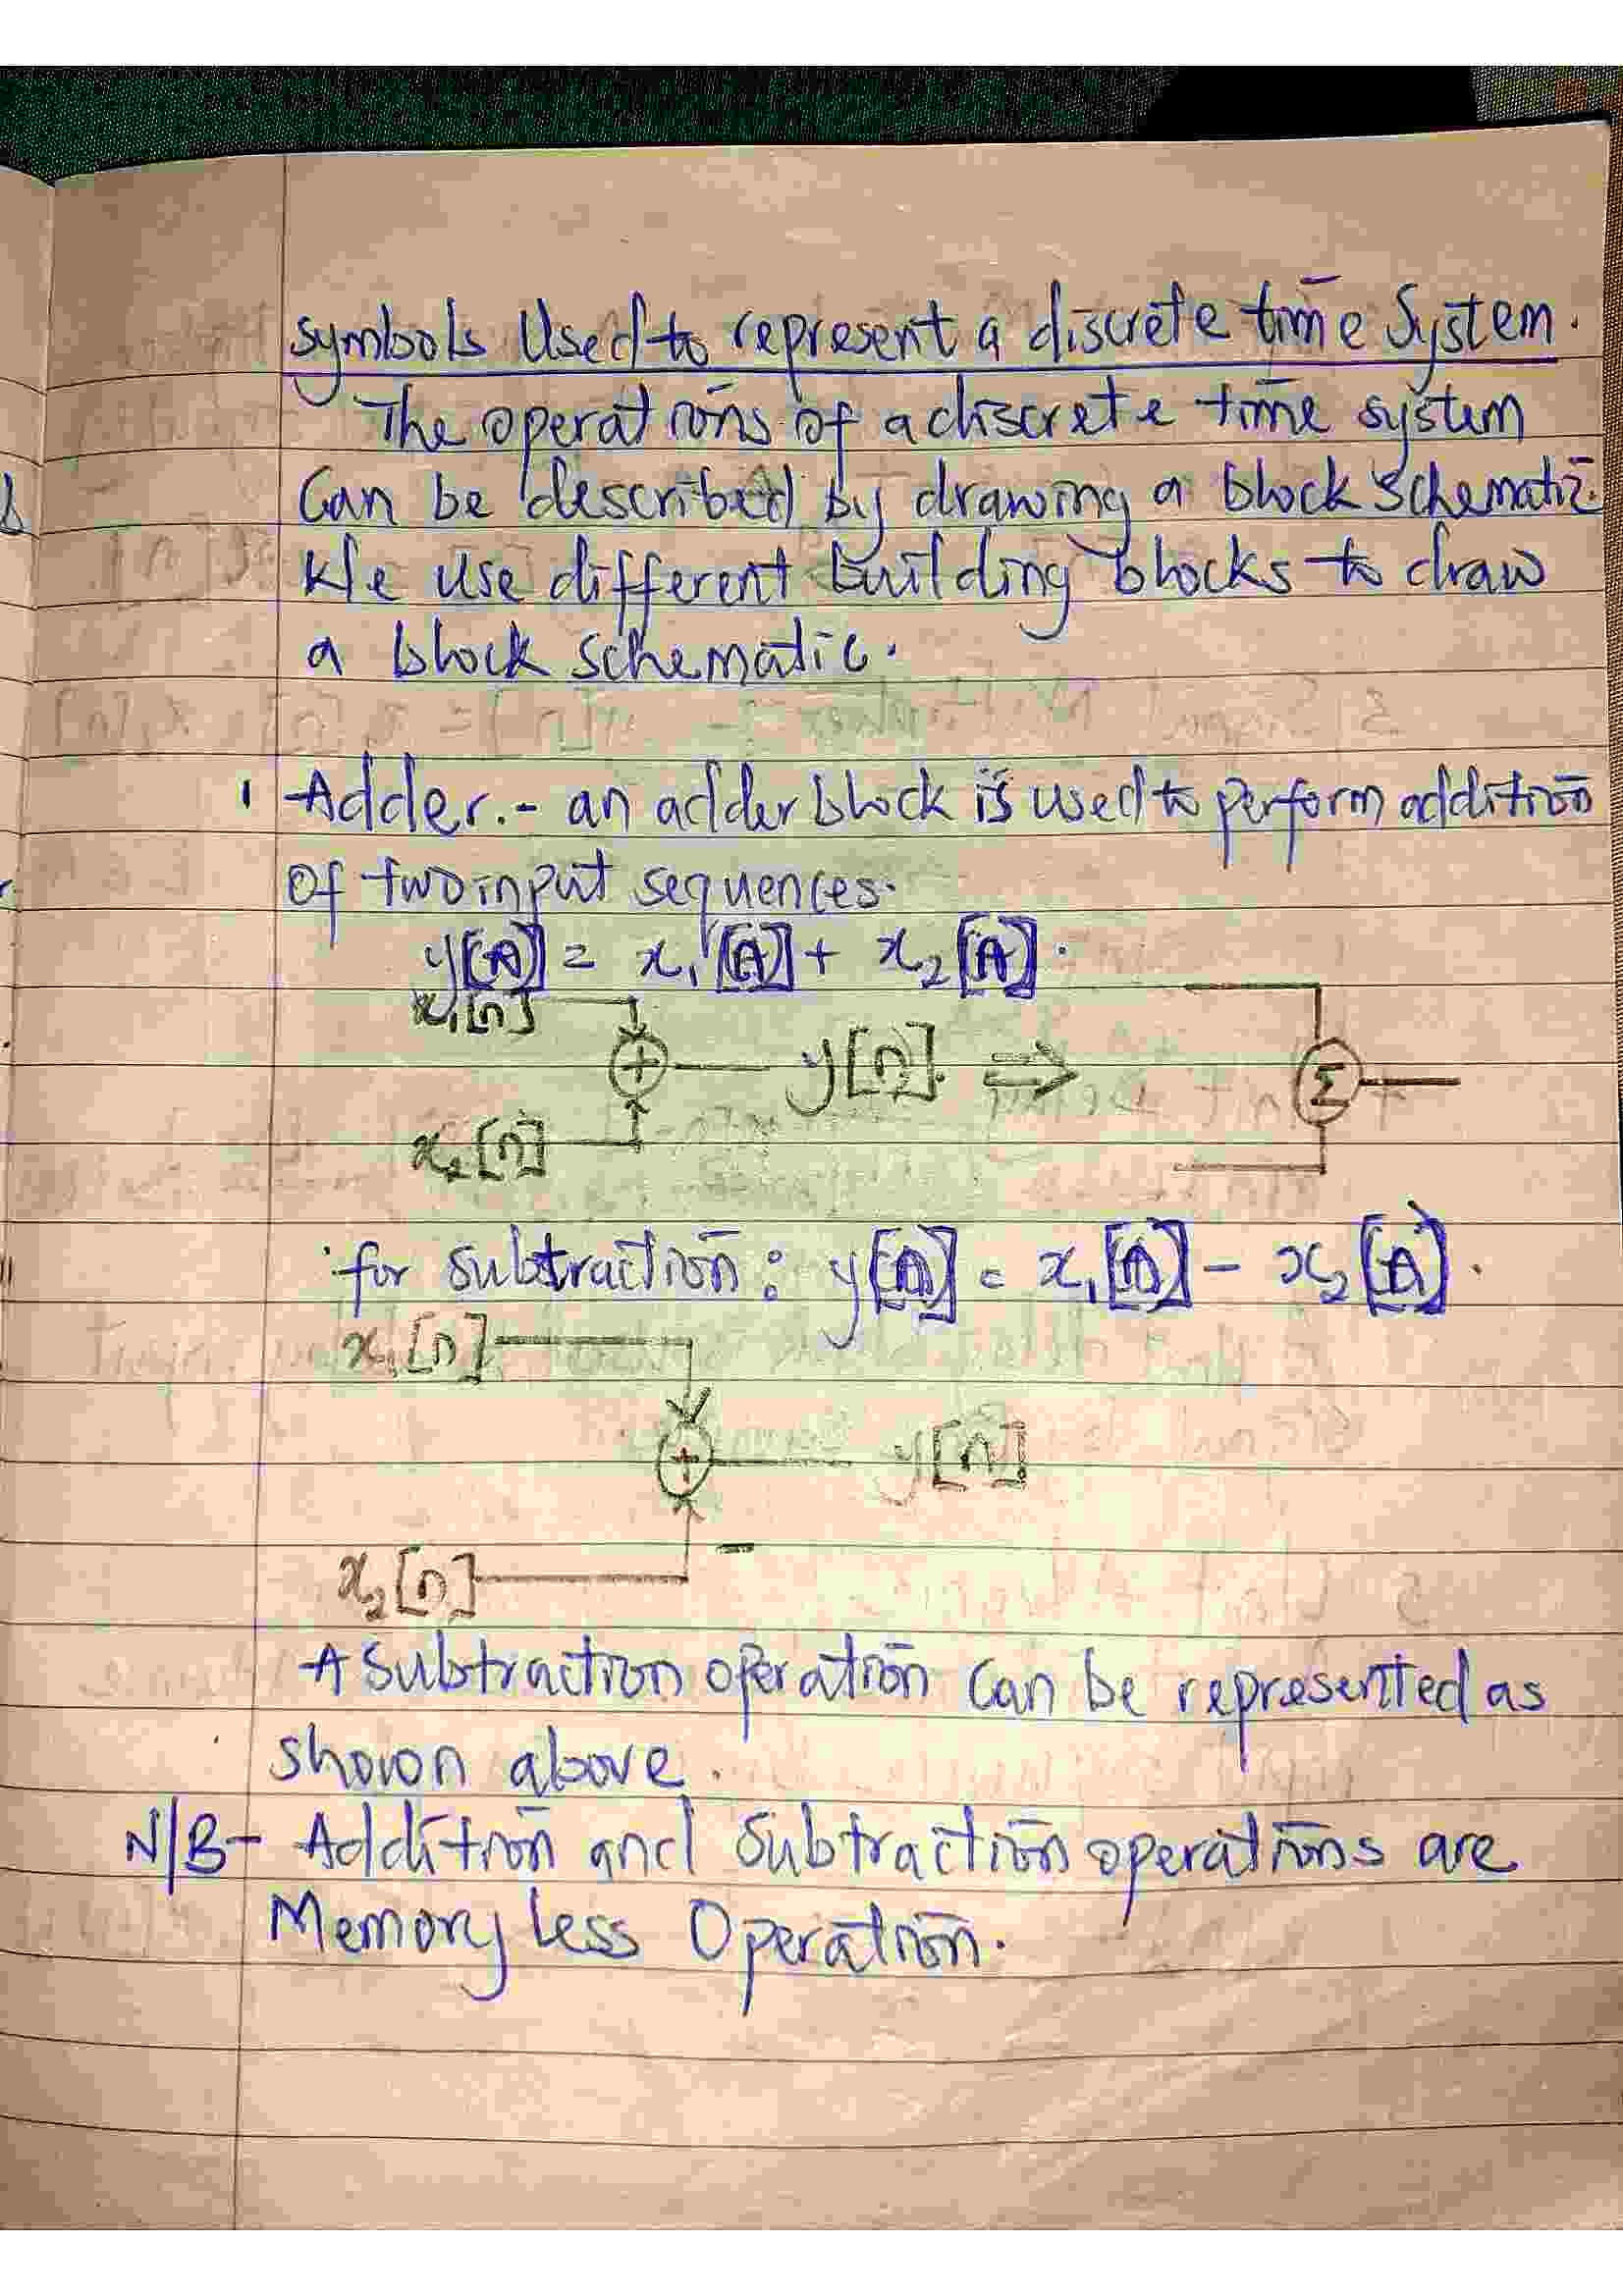 Symbols Used to represent a discrete time System.
The operations of a discrete time system
Can be described by drawing a block schematic.
We use different building blocks to draw
a block schematic.
1 Adder.- an adder block is used to perform addition
of two input sequences.
y[n] = x₁[n] + x₂[n].
x₁[n]
+ y[n]. ⇒ Σ
x₂[n]
for subtraction: y[n] = x₁[n] - x₂[n].
x₁[n]
+ y[n]
-
x₂[n]
A Subtraction operation can be represented as
shown above.
N/B- Addition and Subtraction operations are
Memoryless Operation.